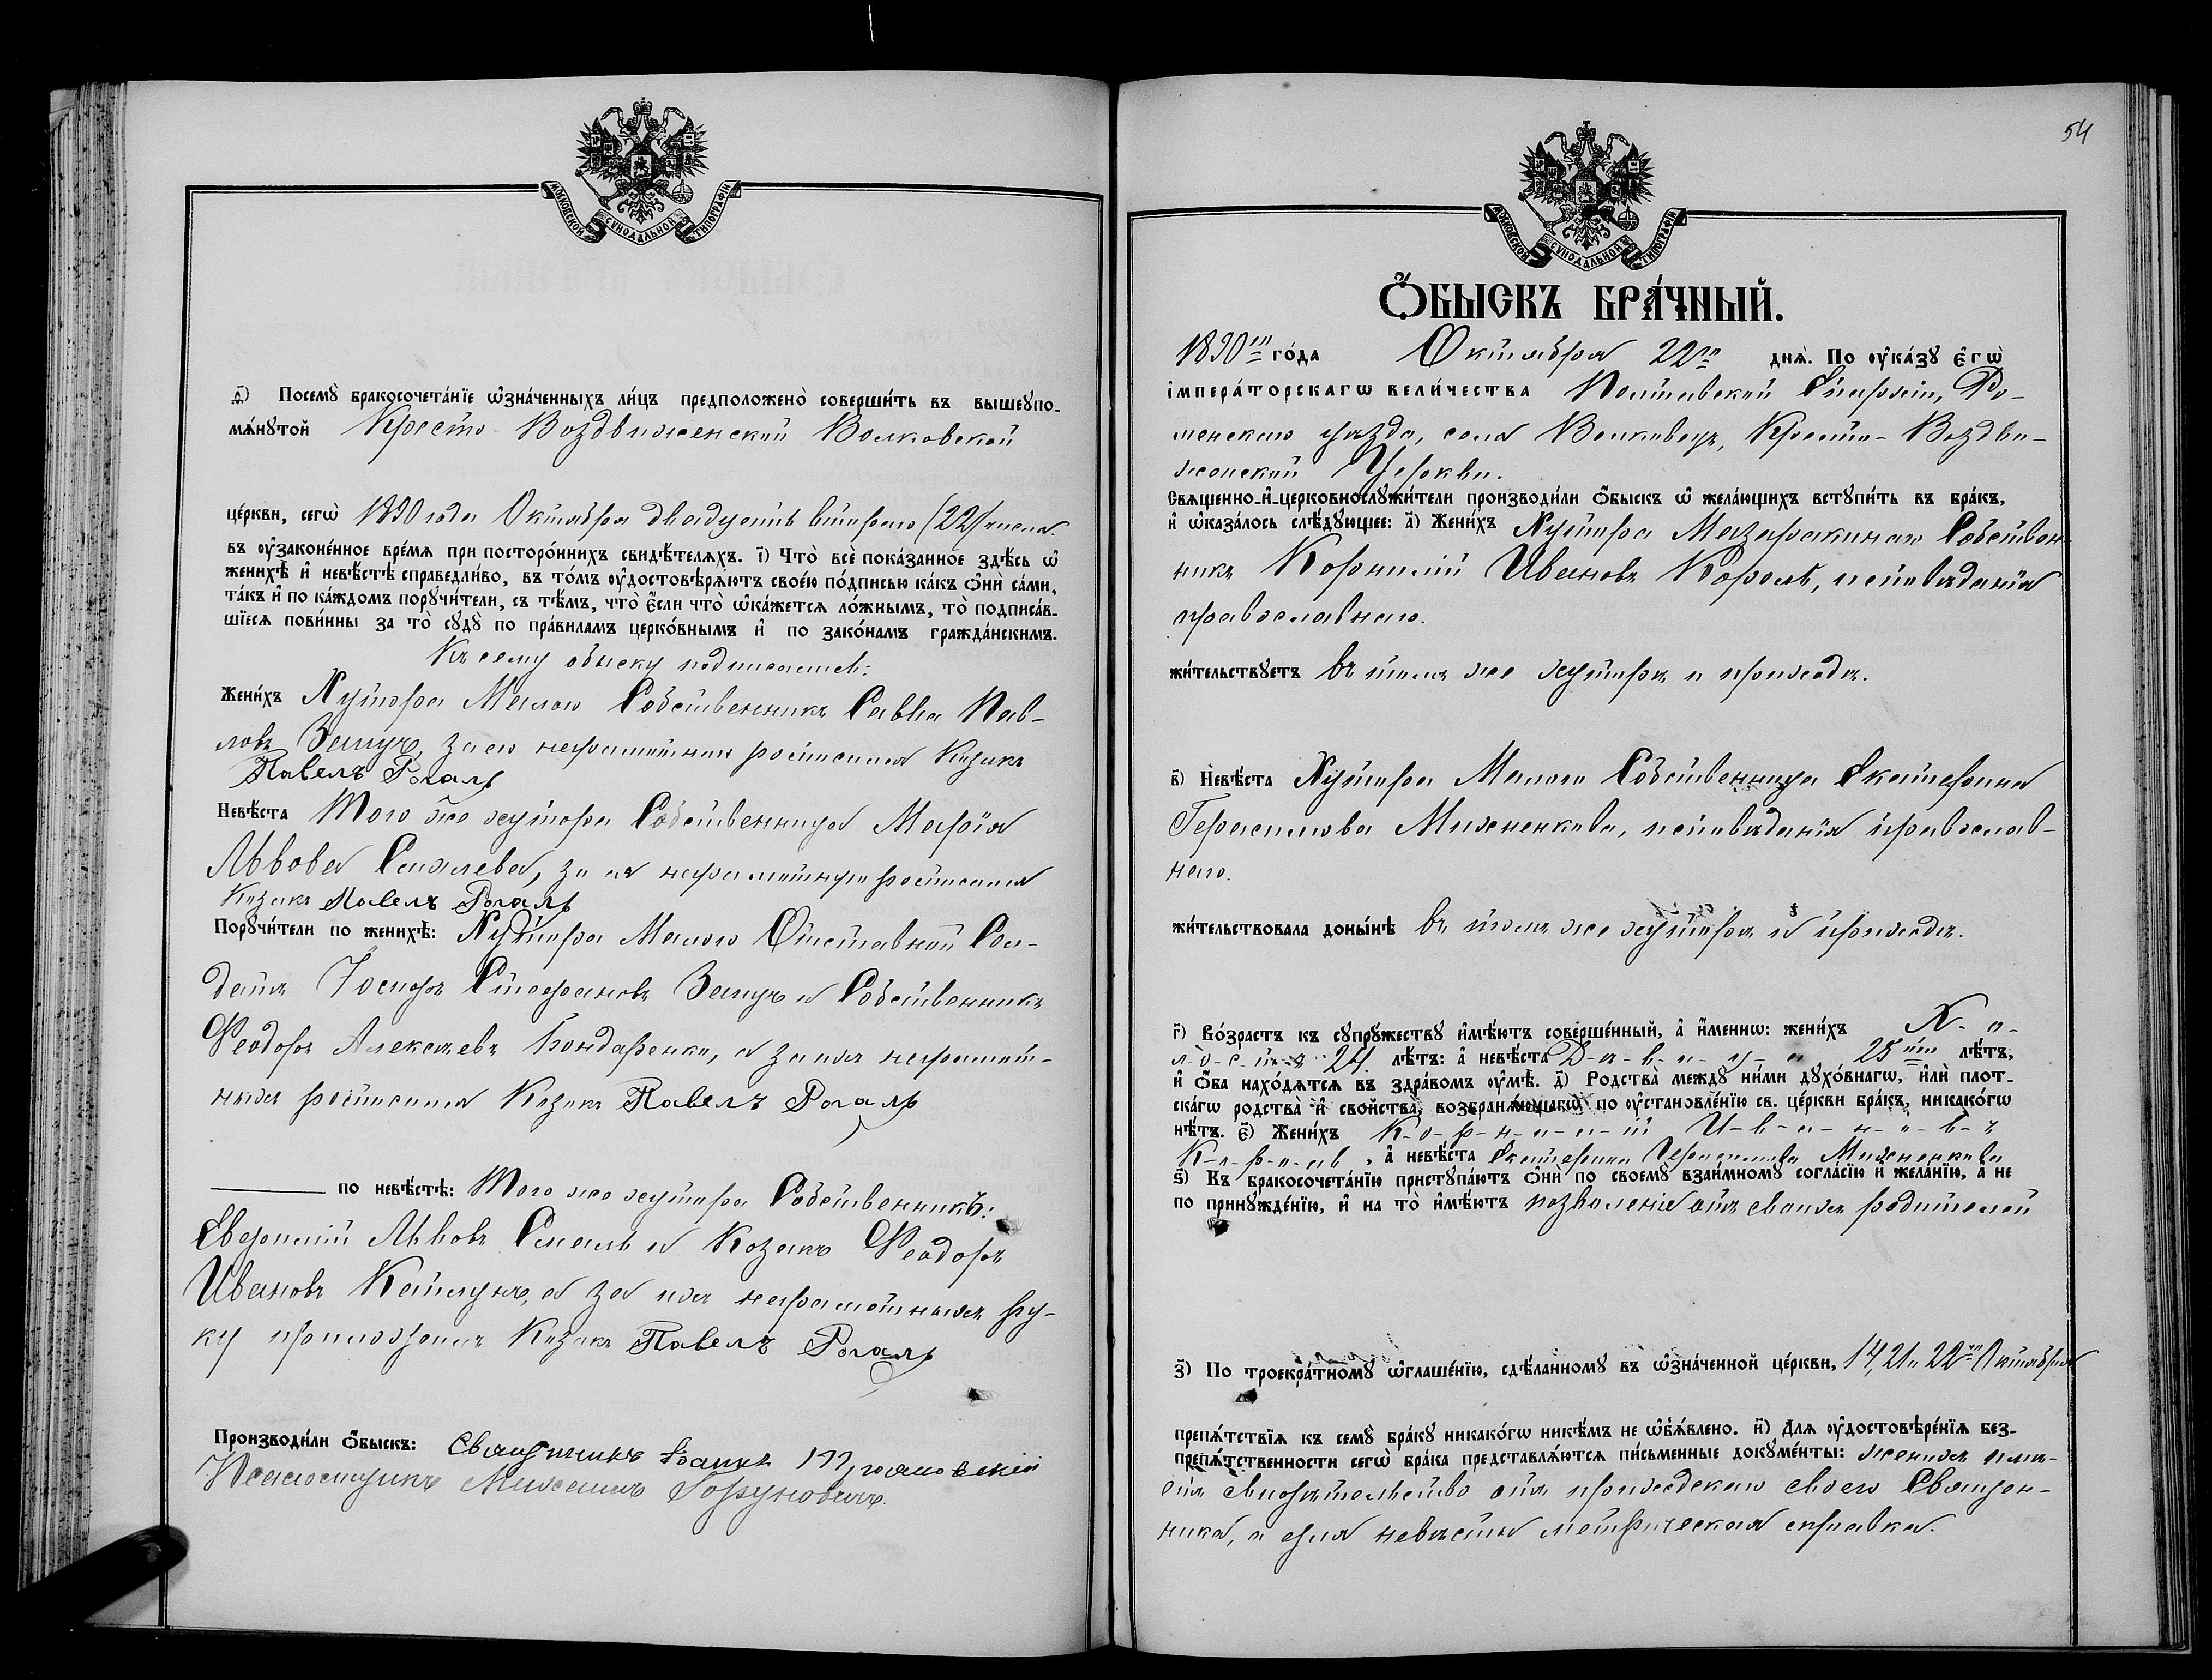 МОСКОВСКОЙ СѴНОДАЛЬНОЙ ТИПОГРАФІИ
Посемꙋ̀ бракосочета́нїе ѡ҆зна́ченныхъ ли́цъ предположено̀ соверши́ть въ вышеꙋпо-
мѧ́нꙋтой Кресто-Воздвиженской Волковской
це́ркви, сегѡ̀ 1890 года Октября двадцать втораго (22) числа
въ ᲂу҆законе́нное вре́мѧ при посторо́ннихъ свидѣ́телѧхъ. і҃) Что̀ всѐ пока́занное здѣ́сь ѡ҆
женихѣ̀ и҆ невѣ́стѣ справедли́во, въ то́мъ ᲂу҆достовѣрѧ́ютъ свое́ю по́дписью ка́къ ѻ҆нѝ са́ми,
та́къ и҆ по ка́ждомъ порꙋчи́тели, съ тѣ́мъ, что̀ є҆́сли что̀ ѡ҆ка́жетсѧ ло́жнымъ, то̀ подписа́в-
шїесѧ пови́нны за то̀ сꙋдꙋ̀ по пра́виламъ церко́внымъ и҆ по зако́намъ гражда́нскимъ.
Къ сему обыску подписались:
Жени́хъ Хутора Малого Собственникъ Савва Пав-
ловъ Запуч, за его неграмотнаго росписался Козакъ
Павелъ Рогаль
Невѣ́ста Того же хутора Собственница Марія
Львова Смалева, за ея неграмотную росписался
Козакъ Павелъ Рогаль
Порꙋчи́тели по женихѣ̀: Хутора Малого Отставной Сол-
датъ Іосифъ Стефановъ Запуч и Собственникъ
Ѳеодоръ Алексѣевъ Бондаренко, а за ихъ неграмот-
ныхъ росписался Козакъ Павелъ Рогаль
по невѣ́стѣ: Того же хутора Собственникъ:
Евфимій Львовъ Смаль и Козакъ Ѳеодоръ
Ивановъ а за ихъ неграмотныхъ ру-
ку приложилъ Козакъ Павелъ Рогаль
Производи́ли ѻ҆́быскъ: Священникъ Іоаннъ
Псаломщикъ Михаилъ
54
МОСКОВСКОЙ СѴНОДАЛЬНОЙ ТИПОГРАФІИ
Ѻ҆́БЫСКЪ БРА́ЧНЫЙ.
1890го го́да Октября 22го днѧ̀. По ᲂу҆ка́зꙋ є҆гѡ̀
і҆мпера́торскагѡ вели́чества Полтавской Епархіи, Ро-
менскаго уѣзда, села Волковецъ, Кресто-Воздви-
женской Церкви.
Свѧщенно-и҆-церковнослꙋжи́тели производи́ли ѻ҆́быскъ ѡ҆ жела́ющихъ встꙋпи́ть въ бра́къ,
и҆ ѡ҆каза́лось слѣ́дꙋющее: а҃) Жени́хъ Хутора Собствен-
никъ Корнилій Ивановъ Король, исповѣданія
православнаго.
жи́тельствꙋетъ въ томъ же хуторѣ и приходѣ.
в҃) Невѣ́ста Хутора Малого Собственница Екатерина
Герасимова Михненкова, исповѣданія православ-
наго.
жи́тельствовала доны́нѣ въ томъ же хуторѣ и приходѣ.
г҃) Во́зрастъ къ сꙋпрꙋжествꙋ и҆мѣ́ютъ соверше́нный, а҆ и҆́меннѡ: жени́хъ Х-о-
л-о-с-т-ъ 24. лѣ́тъ: а҆ невѣ́ста Д-ѣ-в-и-ц-а 25ти лѣ́тъ,
и҆ ѻ҆́ба нахо́дѧтсѧ въ здра́вомъ ᲂу҆мѣ̀. д҃) Родства̀ междꙋ ни́ми дꙋхо́внагѡ, и҆лѝ плот-
ска́гѡ родства̀ и҆ свойства̀, возбранѧ́ющагѡ по ᲂу҆становле́нїю св. це́ркви бра́къ, никако́гѡ
нѣ́тъ. є҃) Жени́хъ К-о-р-н-и-л-і-й И-в-а-н-о-в-ъ
К-о-р-о-л-ь, а҆ невѣ́ста Екатерина Герасимова Михненкова
ѕ҃) Къ бракосочета́нїю пристꙋпа́ютъ ѻ҆нѝ по своемꙋ̀ взаи́мномꙋ согла́сїю и҆ жела́нїю, а҆ не
по принꙋжде́нїю, и҆ на то̀ и҆мѣ́ютъ позволеніе отъ своихъ родителей
з҃) По троекра́тномꙋ ѡ҆глаше́нїю, сдѣ́ланномꙋ въ ѡ҆зна́ченной це́ркви, 14, 21 и 22го Октября
препѧ́тствїѧ къ семꙋ̀ бра́кꙋ никако́гѡ никѣ́мъ не ѡ҆б̾ѧ́влено. и҃) Длѧ ᲂу҆достовѣре́нїѧ без-
препѧ́тственности сегѡ̀ бра́ка представлѧ́ютсѧ пи́сьменные докꙋме́нты: жениха имѣ-
етъ свидѣтельство отъ приходскаго своего Священ-
ника, а для невѣсты метрическая справка.